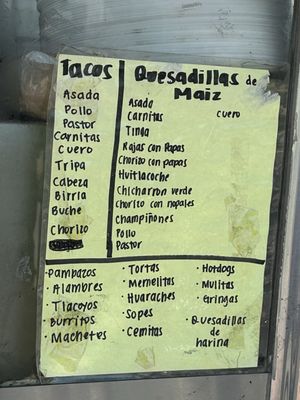 Tacos
Asada
Pollo
Pastor
Carnitas
Cuero
Tripa
Cabeza
Birria
Buche
Chorizo
Quesadillas de
Maiz
Asada
Carnitas
Tinga
Rajas con Papas
Chorizo con papas
Huitlacoche
Chicharron verde
Chorizo con nopales
Champiñones
Pollo
Pastor
cuero
·Pambazos
·Alambres
·Tlacoyos
·Burritos
·Machetes
·Tortas
·Memelitas
·Huaraches
·Sopes
·Cemitas
·Hotdogs
·Mulitas
·Gringas
·Quesadillas
de
harina